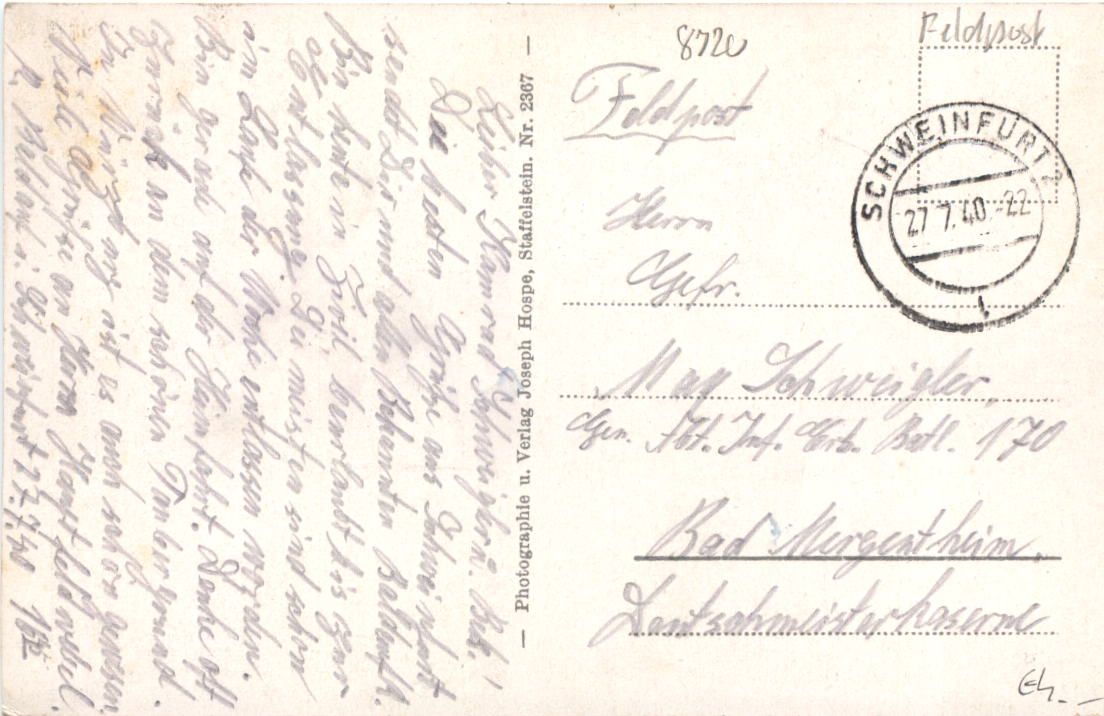 Lieber Kamerad Schweigler u. Bek.!
Die besten Grüße aus Schweinfurt
sendet Dir und allen Bekannten Baldauf.
Bin heute in Zivil, beurlaubt bis zur
Entlassung. Die meisten sind schon
im Laufe der Woche entlassen worden.
Bin gerade auf der Heimfahrt. Denke oft
zurück an den schönen Taubergrund.
In Königshofen ist es auch schön gewesen.
Viele Grüße an Herrn Hauptfeldwebel.
Schweinfurt 27.7.40
— Photographie u. Verlag Joseph Hospe, Staffelstein. Nr. 2367 —
8720
Feldpost
Feldpost
SCHWEINFURT 2
27.7.40.-22
Herrn
Gefr.
Max Schweigler,
Gen. Abt. Inf. Ers. Batl. 170
Bad Mergentheim,
Deutschmeisterkaserne